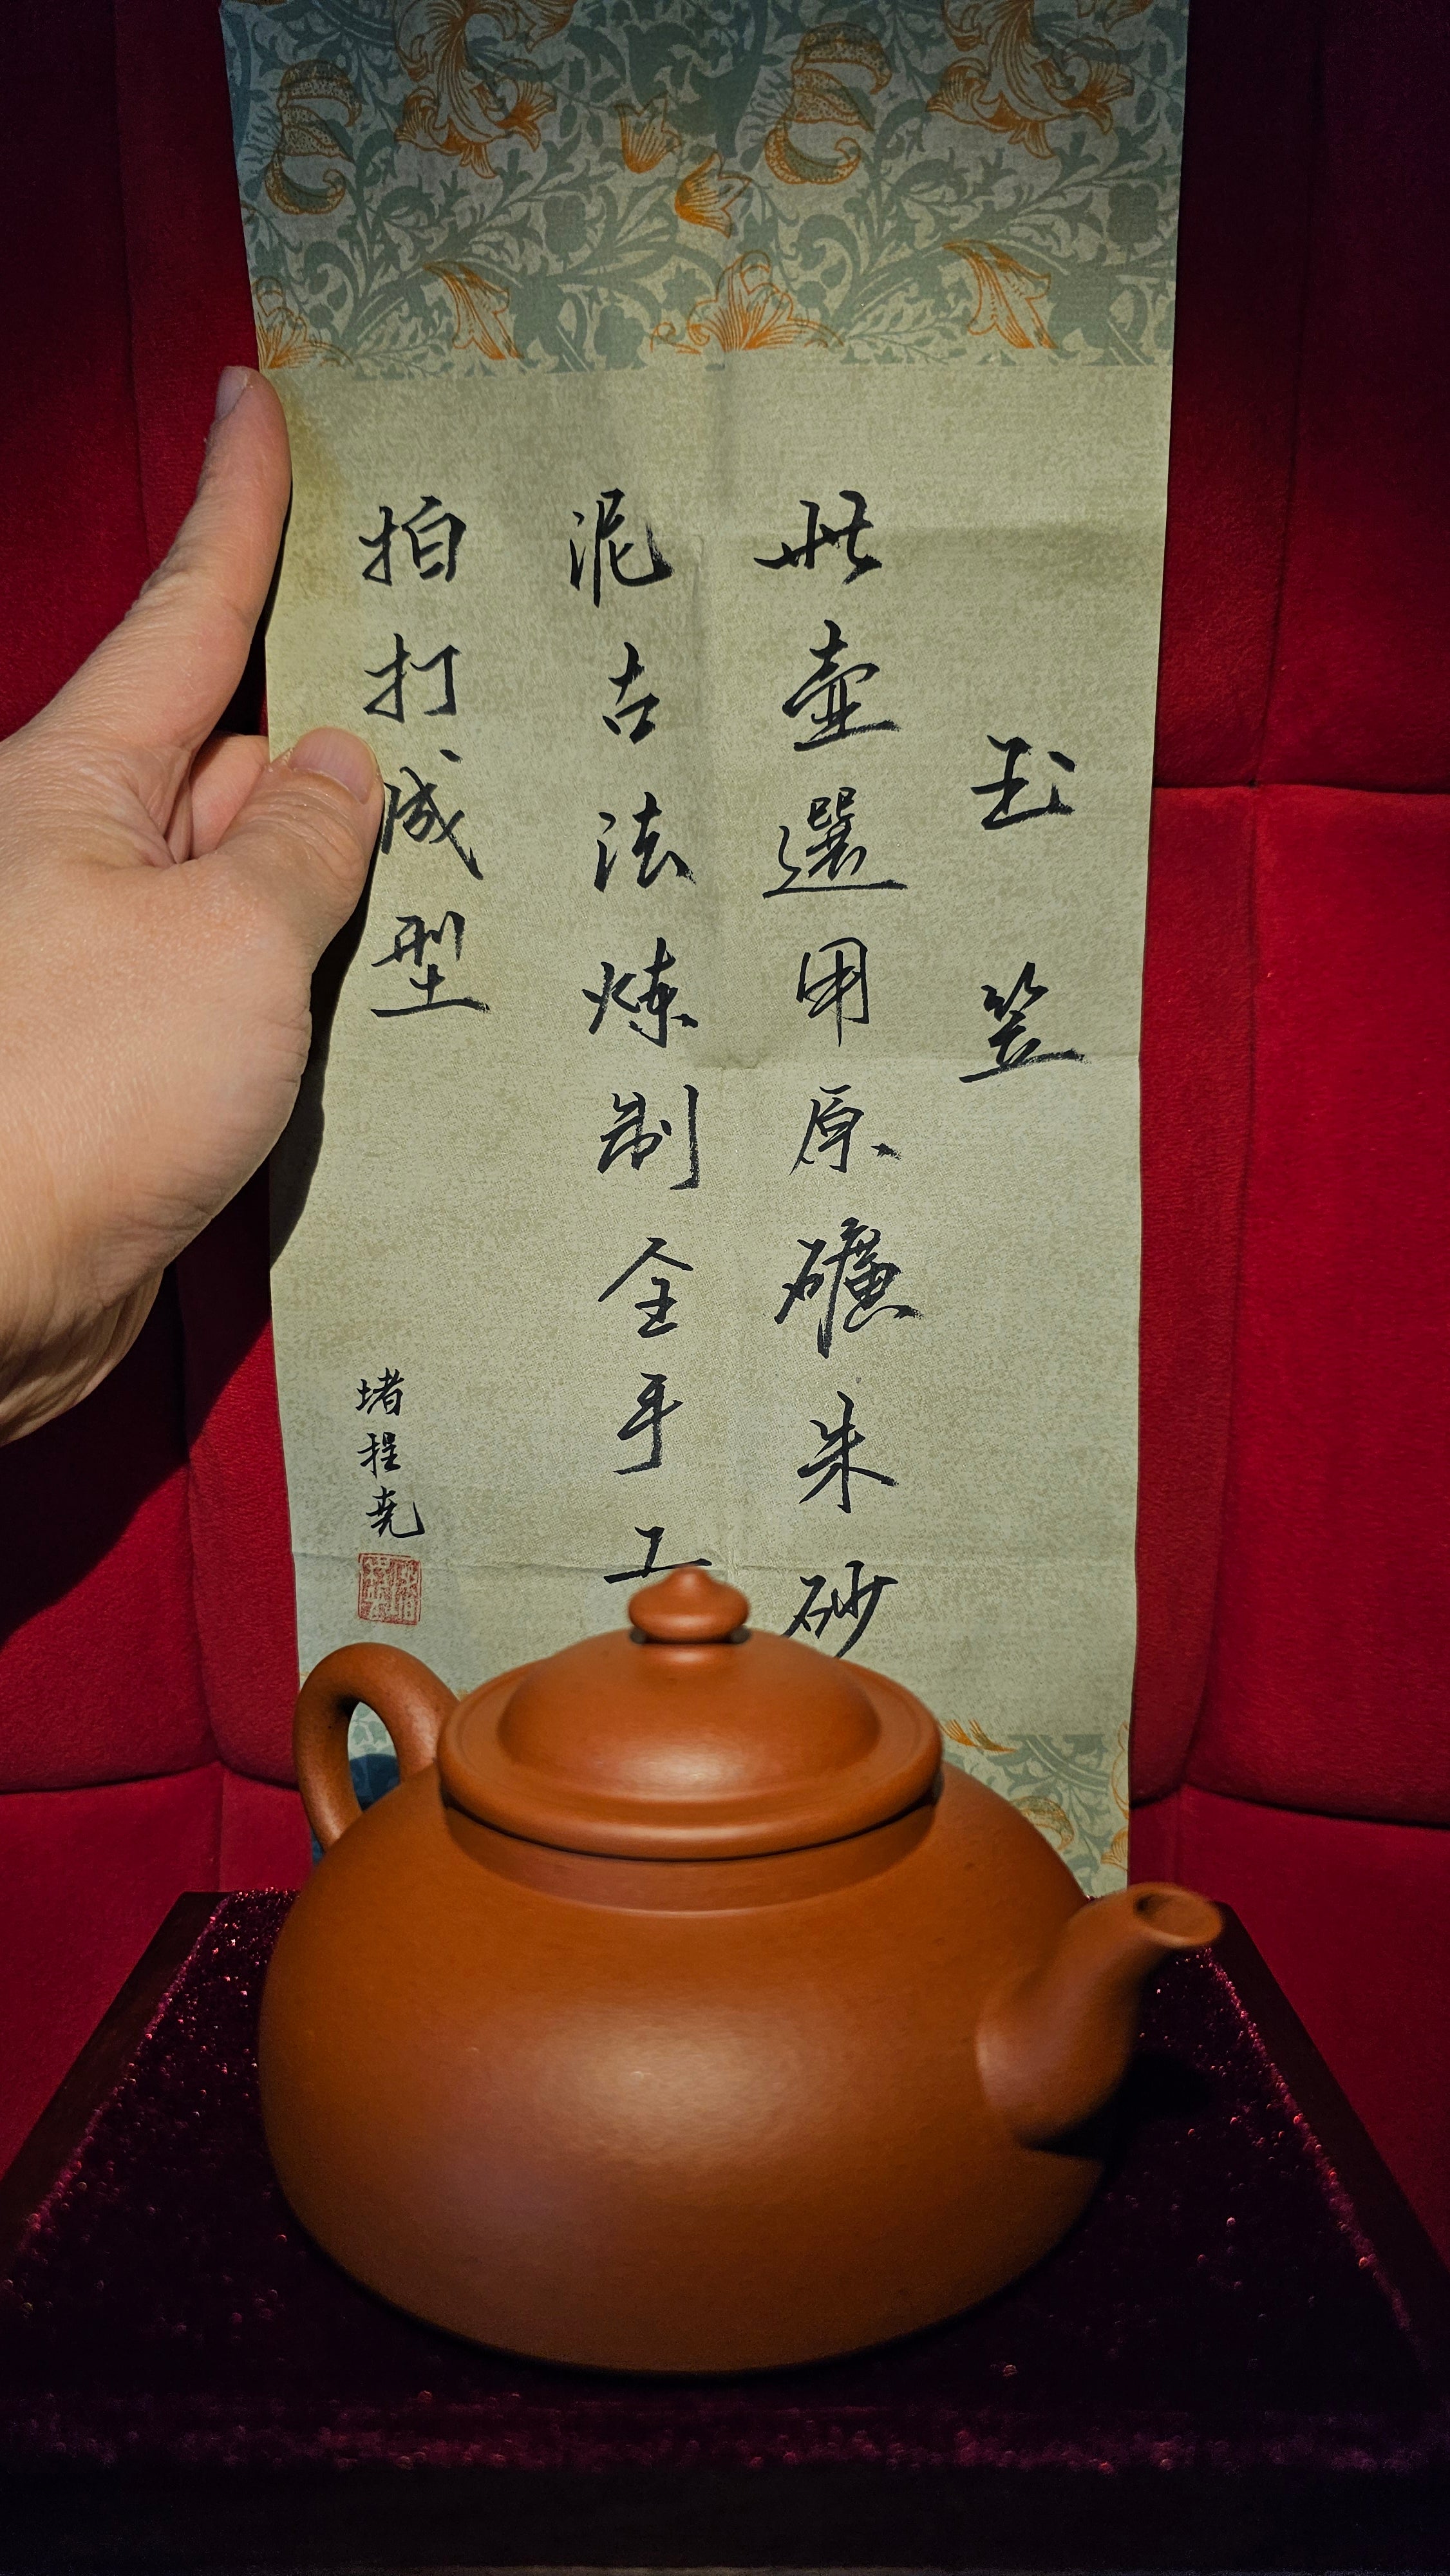 玉笠
此壶選用原礦朱砂
泥古法炼制全手工
拍打成型
堵程尧